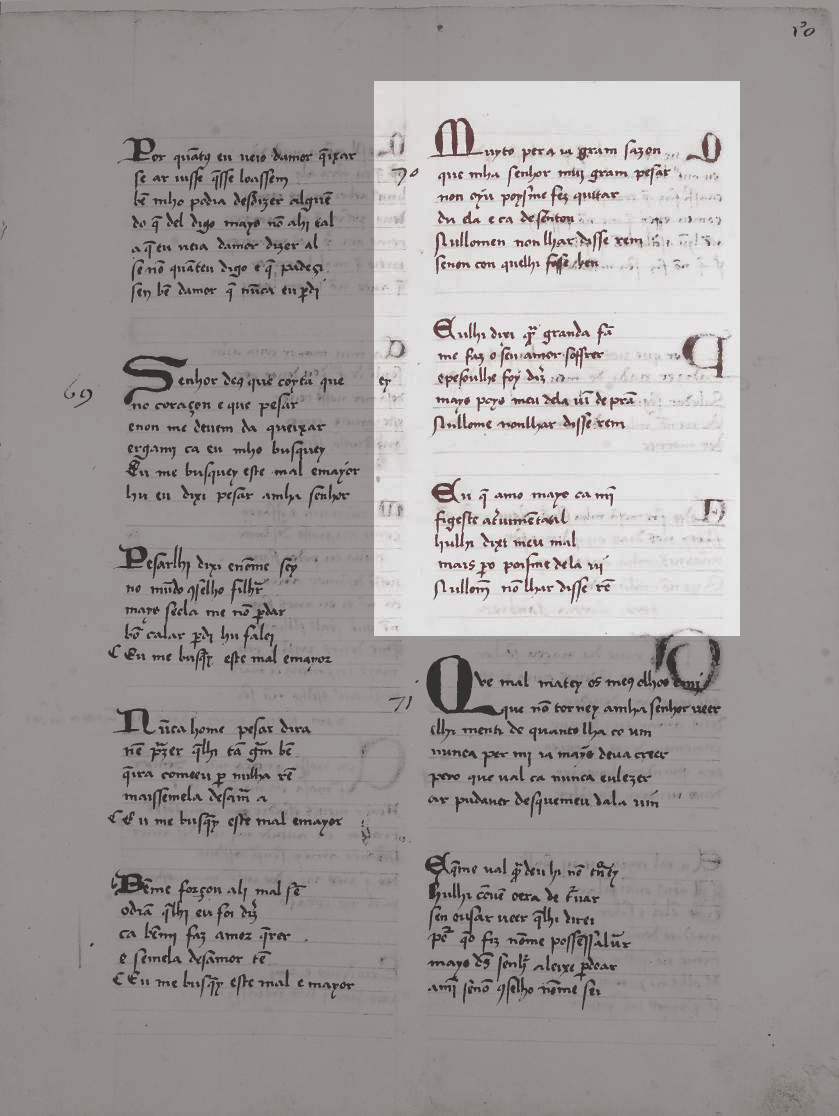 Por quãtq eu veio damor q̃ixar
se ar uisse q̃sse loassem
bẽ mho podia desdizer alguẽ
do q̃ del digo mays nõ ahi tal
a q̃ eu veia damor dizer al
se nõ quãteu digo e q̃ padeçi
sen bẽ damor q̃ nũca eu p̃di
69
Senhor deq̃ que coyta que ey
no coraçon e que pesar
enon me deuem da queixar
ergami ca eu mho busquey
Eu me busquey este mal emayor
hu eu dixi pesar amha senhor
Pesarlhi dixi enõme sey
no mũdo ꝯselho filhr̃
mays seela me nõ p̃dar
bõ calar p̃di hu falei
Eu me busq̃y este mal emayor
Nũca home pesar dira
nẽ p̃zer q̃lhi tã gr̃m bẽ
q̃ira comeeu p̃ nulha rẽ
maissemela desam̃ a
Eu me busq̃y este mal emayor
Bẽme forçon ali mal sẽ
odiã q̃lhi eu foi diz̃
ca bẽmi faz amor q̃rer
e semela desamor tẽ
Eu me busq̃y este mal e mayor
70
Muyto per a ia gram sazon
que mha senhor mui gram pesar
non oyu poysme fez quitar
du ela e ca desenton
Nullomen non lhar disse rem
senon con quelhi fosse ben
Eulhi dixi q̃ granda fã
me faz o seu amor soffrer
epesoulhe foy diz̃
mays poys meu dela uĩ de prã
Nullome nonlhar disse rem
Eu q̃ amo mays ca mĩ
figeste
hulhi dixi meu mal
mais p̃o poisme dela vij
Nullom̃ nõ lhar disse rẽ
71
Que mal matey os meq̃ olhos
que nõ torney amha senhor veer
elhi menti de quanto lha co um
nunca per mi ia mays deua creer
pero que val ca nunca eulezer
ar pudauer desquemeu dala uim
Eq̃me val q̃ deu hi nõ
hulhi cõuẽ oera de t̃uar
sen ousar ueer q̃lhi direi
q̃o fiz nõme
mays d̃s senh̃ aleixe p̃doar
amĩ senõ ꝯselho nõme sei